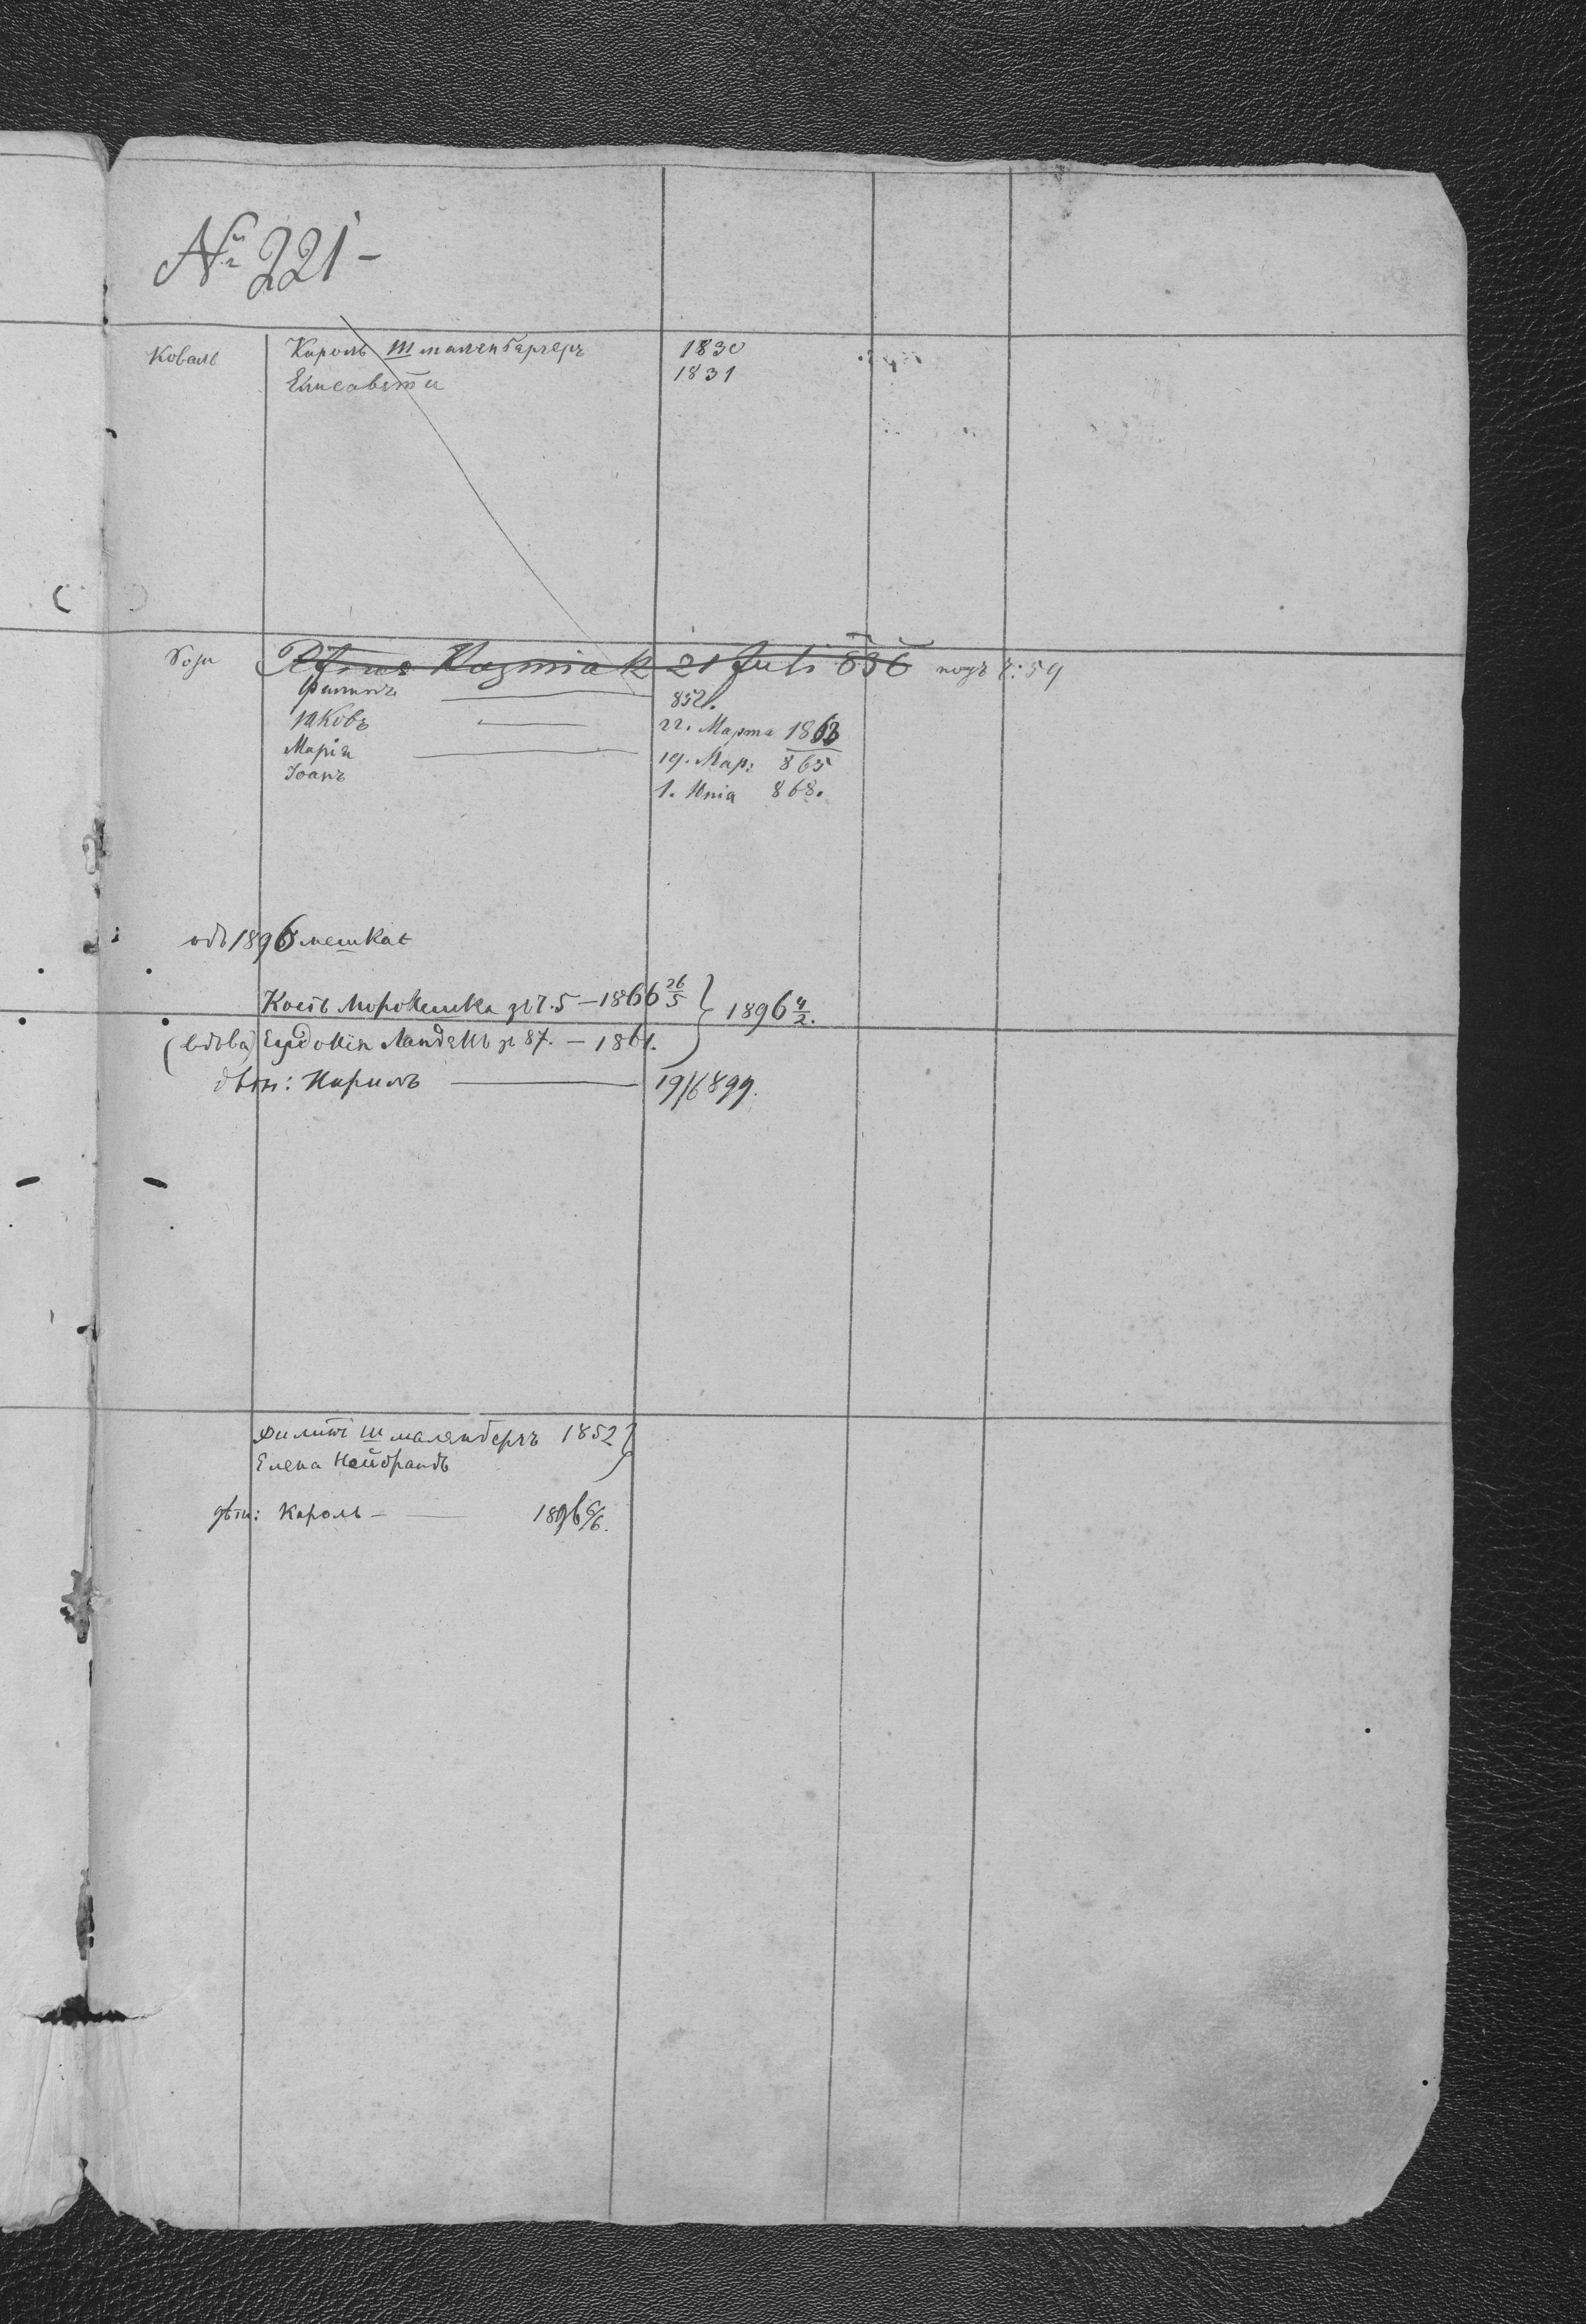 № 221 -
Коваль Кароль Шмаленбергеръ 1830
Елисавета 1831
Kuzmiak 21 Juli 856 подъ Ч: 59
Филипъ 852.
Яковъ 22. Марта 1863
Марія 19. Мар: 865
Іоанъ 1. Юнія 868.
одъ 1896 мешкає
Кость Морокишка зъ Ч. 5 - 1866 26/5 } 1896 4/2.
(вдова) Евдокія зъ 87. - 1861.
дѣти: Кирилъ 19/6 899.
Филипъ Шмаленберъ 1852 }
Елена Нойбрандъ
дѣти: Кароль - 1896 6/6.